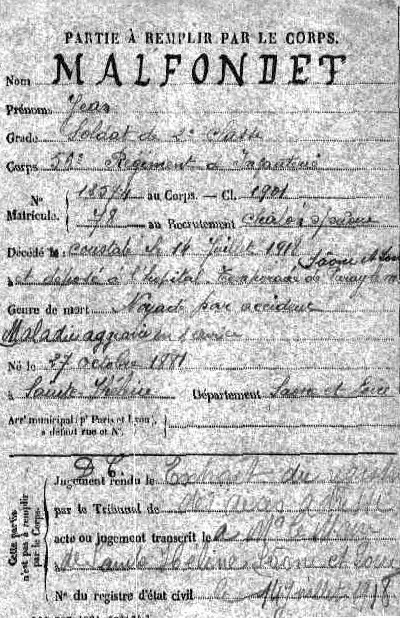 PARTIE À REMPLIR PAR LE CORPS.
Nom MALFONDET
Prénoms Jean
Grade Soldat de 2e Classe
Corps 56e Régiment d'Infanterie
N° au Corps. — Cl. 1901
Matricule. 78 au Recrutement Chalon s/Saône
Décédé le : constaté le 14 Juillet 1918
Saône et Loire
à et déposé à l'hôpital temporaire de Paray le M
Genre de mort Noyade par accident
Maladie aggravée en service
Né le 27 octobre 1881
à Sainte Hélène Département Saône et Loire
Arrt municipal (pr Paris et Lyon),
à défaut rue et N°.
Cette partie
n'est pas à remplir
par le Corps.
D. C.
Jugement rendu le Extrait du
par le Tribunal de
acte ou jugement transcrit le
Sainte Hélène Saône et Loire
N° du registre d'état civil 1918